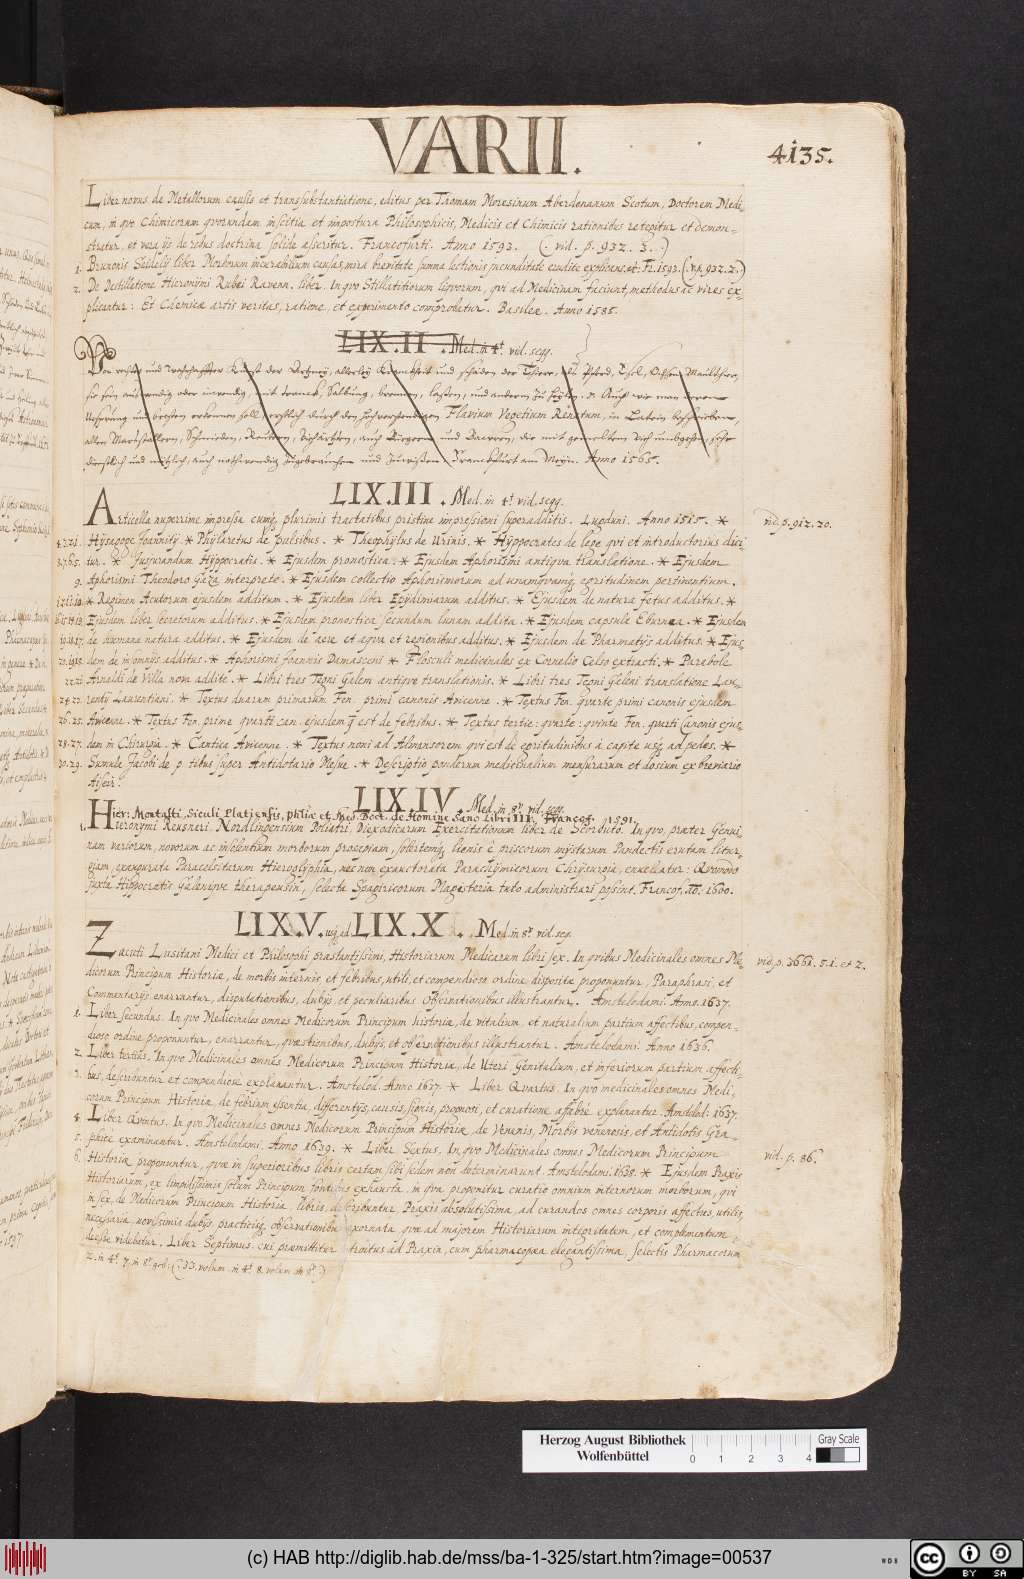 VARII.
4135.
Liber novus de Metallorum causis et transsubstantiatione, editus per Thomam Moresinum Aberdonanum Scotum, Doctorem Medi-
cum, in quo Chimicorum quorundam inscitia et impostura Philosophicis, Medicis et Chimicis rationibus retegitur et demon=
stratur, et vera ijs de rebus doctrina solide asseritur. Francofurti. Anno 1593. (. vid. p. 932. 3. .)
1. Brunonis Seidelij liber Morborum incurabilium causas, mira brevitate summa lectionis jucunditate erudite explicans, etc. Fr. 1593. (. v. p. 932. 2. .)
2. De Destillatione Hieronymi Rubei Ravenn. liber. In quo Stillatitiorum liquorum, qui ad Medicinam faciunt, methodus ac vires ex-
plicantur: Et Chemicae artis veritas, ratione, et experimento comprobatur. Basileae. Anno 1585.
LIX.II. Med. in 4t. vid. seqq.
Von rechter und warhaffter Kunst der Artzney, allerley Kranckheit und schäden der Thiere, als Pferd, Esel, Ochsen, Maulthier,
sie sein auswendig oder inwendig, mit tranck, Salbung, brennen, lassen, und anderm zu heylen. Auch wie man deren
Ursprung und brechen erkennen soll, erstlich durch den Hocherfahrnen Flavium Vegetium Renatum, in Latein beschrieben,
allen Marstallern, Schmieden, Reutern, auch Bürgern und Bawren, die mit gemeltem Vieh umbgehen, sehr
dienstlich und nützlich, auch nothwendig zugebrauchen und zuwissen. Franckfurt am Meyn. Anno 1565.
LIX.III. Med. in 4t. vid. seqq.
Articella nuperrime impressa cumque plurimis tractatibus pristine impressioni superadditis. Lugduni. Anno 1515. *
vid. p. 912. 20.
Hysagoge Joannitij * Phylaretus de pulsibus. * Theophylus de Urinis. * Hyppocrates de lege qui et introductorius dici
tur. * Jusjurandum Hyppocratis. * Ejusdem pronostica: * Ejusdem Aphorismi antiqua translatione. * Ejusdem
9. Aphorismi Theodoro Gaza interprete. * Ejusdem collectio Aphorismorum ad unamquamque egritudinem pertinentium.
* Regimen Acutorum ejusdem additum. * Ejusdem liber Epydimiarum additus. * Ejusdem de natura fetus additus. *
Ejusdem liber secretorum additus. * Ejusdem pronostica secundum lunam addita. * Ejusdem capsula Eburnea. * Ejusdem
de humana natura additus. * Ejusdem de aere et aqua et regionibus additus. * Ejusdem de Pharmatijs additus. * Ejus-
dem de insomnijs additus. * Aphorismi Joannis Damasceni * Flosculi medicinales ex Cornelio Celso extracti. * Parabole
Arnaldi de Villa nova addite. * Libri tres Tegni Galeni antique translationis. * Libri tres Tegni Galeni translatione Lau-
rentij Laurentiani. * Textus duarum primarum Fen. primi canonis Avicenne. * Textus Fen. quarte primi canonis ejusdem
Avicenne. * Textus Fen. prime quarti can. ejusdem q est de febribus. * Textus tertie: quarte: quinte Fen. quarti Canonis ejus-
dem in Chirurgia. * Cantica Avicenne. * Textus noni ad Almansorem qui est de egritudinibus a capite usque ad pedes. *
Summula Jacobi de p tibus super Antidotario Mesue. * Descriptio ponderum medicinalium mensurarum et dosium ex breviario
LIX.IV. Med. in 8t. vid. seqq.
Hier: Montalti, Siculi Platiensis, phliae et Med. Doct. de Homine Sano Libri III. Francof. 1591.
1. Hieronymi Reusneri, Nordlingensium Poliatri, Diexodicarum Exercitationum liber de Scorbuto. In quo, praeter Genui-
nam variorum, novorum ac insolentium morborum prosapiam, solertemque lienis e priscorum mystarum Pandectis erutam litur-
giam, exaugurata Paracelsitarum Hieroglyphia, nec non exauctorata Parachymicorum Chrysurgia, enucleatur: Quomodo
juxta Hippocratis Galenique therapeusin, selecta Spagiricorum Magisteria tuto administrari possint. Francof. ao. 1600.
LIX.V. usq ad LIX.X. Med. in 8t. vid. seq.
Zacuti Lusitani Medici et Philosophi praestantissimi, Historiarum Medicarum libri sex. In quibus Medicinales omnes Me-
vid. p. 3661. 5. 1. et 2.
dicorum Principum Historiae, de morbis internis et febribus, utili, et compendioso ordine dispositae proponuntur, Paraphrasi, et
Commentarijs enarrantur, disputationibus, dubijs, et peculiaribus Observationibus illustrantur. Amstelodami. Anno. 1637.
1. Liber secundus. In quo Medicinales omnes Medicorum Principum historiae, de vitalium, et naturalium partium affectibus, compen-
dioso ordine proponuntur, enarrantur, quaestionibus, dubijs, et observationibus illustrantur. Amstelodami. Anno 1636.
2. Liber tertius. In quo Medicinales omnes Medicorum Principum Historiae, de Uteri Genitalium, et inferiorum partium affecti-
3. bus, describuntur et compendiose explanantur. Amstelod. Anno 1637. * Liber Quartus. In quo medicinales omnes Medi-
corum Principum Historiae, de febrium essentia, differentijs, causis, signis, prognosi, et curatione affabre explanantur. Amstelod: 1637.
4. Liber Quintus. In quo Medicinales omnes Medicorum Principum Historiae, de Venenis, Morbis venenosis, et Antidotis Gra-
5. phice examinantur. Amstelodami. Anno 1639. * Liber Sextus. In quo Medicinales omnes Medicorum Principum
vid. p. 86.
6. Historiae proponuntur, quae in superioribus libris certam sibi sedem non determinarunt. Amstelodami. 1638. * Ejusdem Praxis
Historiarum, ex limpidissimis solum Principum fontibus exhausta, in qua proponitur curatio omnium internorum morborum, qui
in sex, de Medicorum Principum Historia, libris, describuntur. Praxis absolutissima, ad curandos omnes corporis affectus, utilis,
necessaria, novissimis dubijs practicis, observationibus exornata, quae ad majorem Historiarum integritatem, et complementum
deesse videbatur. Liber Septimus. cui praemittitur Introitus ad Praxin, cum pharmacopoea elegantissima, selectis Pharmacorum
Herzog August Bibliothek
Wolfenbüttel
Gray Scale
0 1 2 3 4
(c) HAB http://diglib.hab.de/mss/ba-1-325/start.htm?image=00537
WDB
cc BY SA